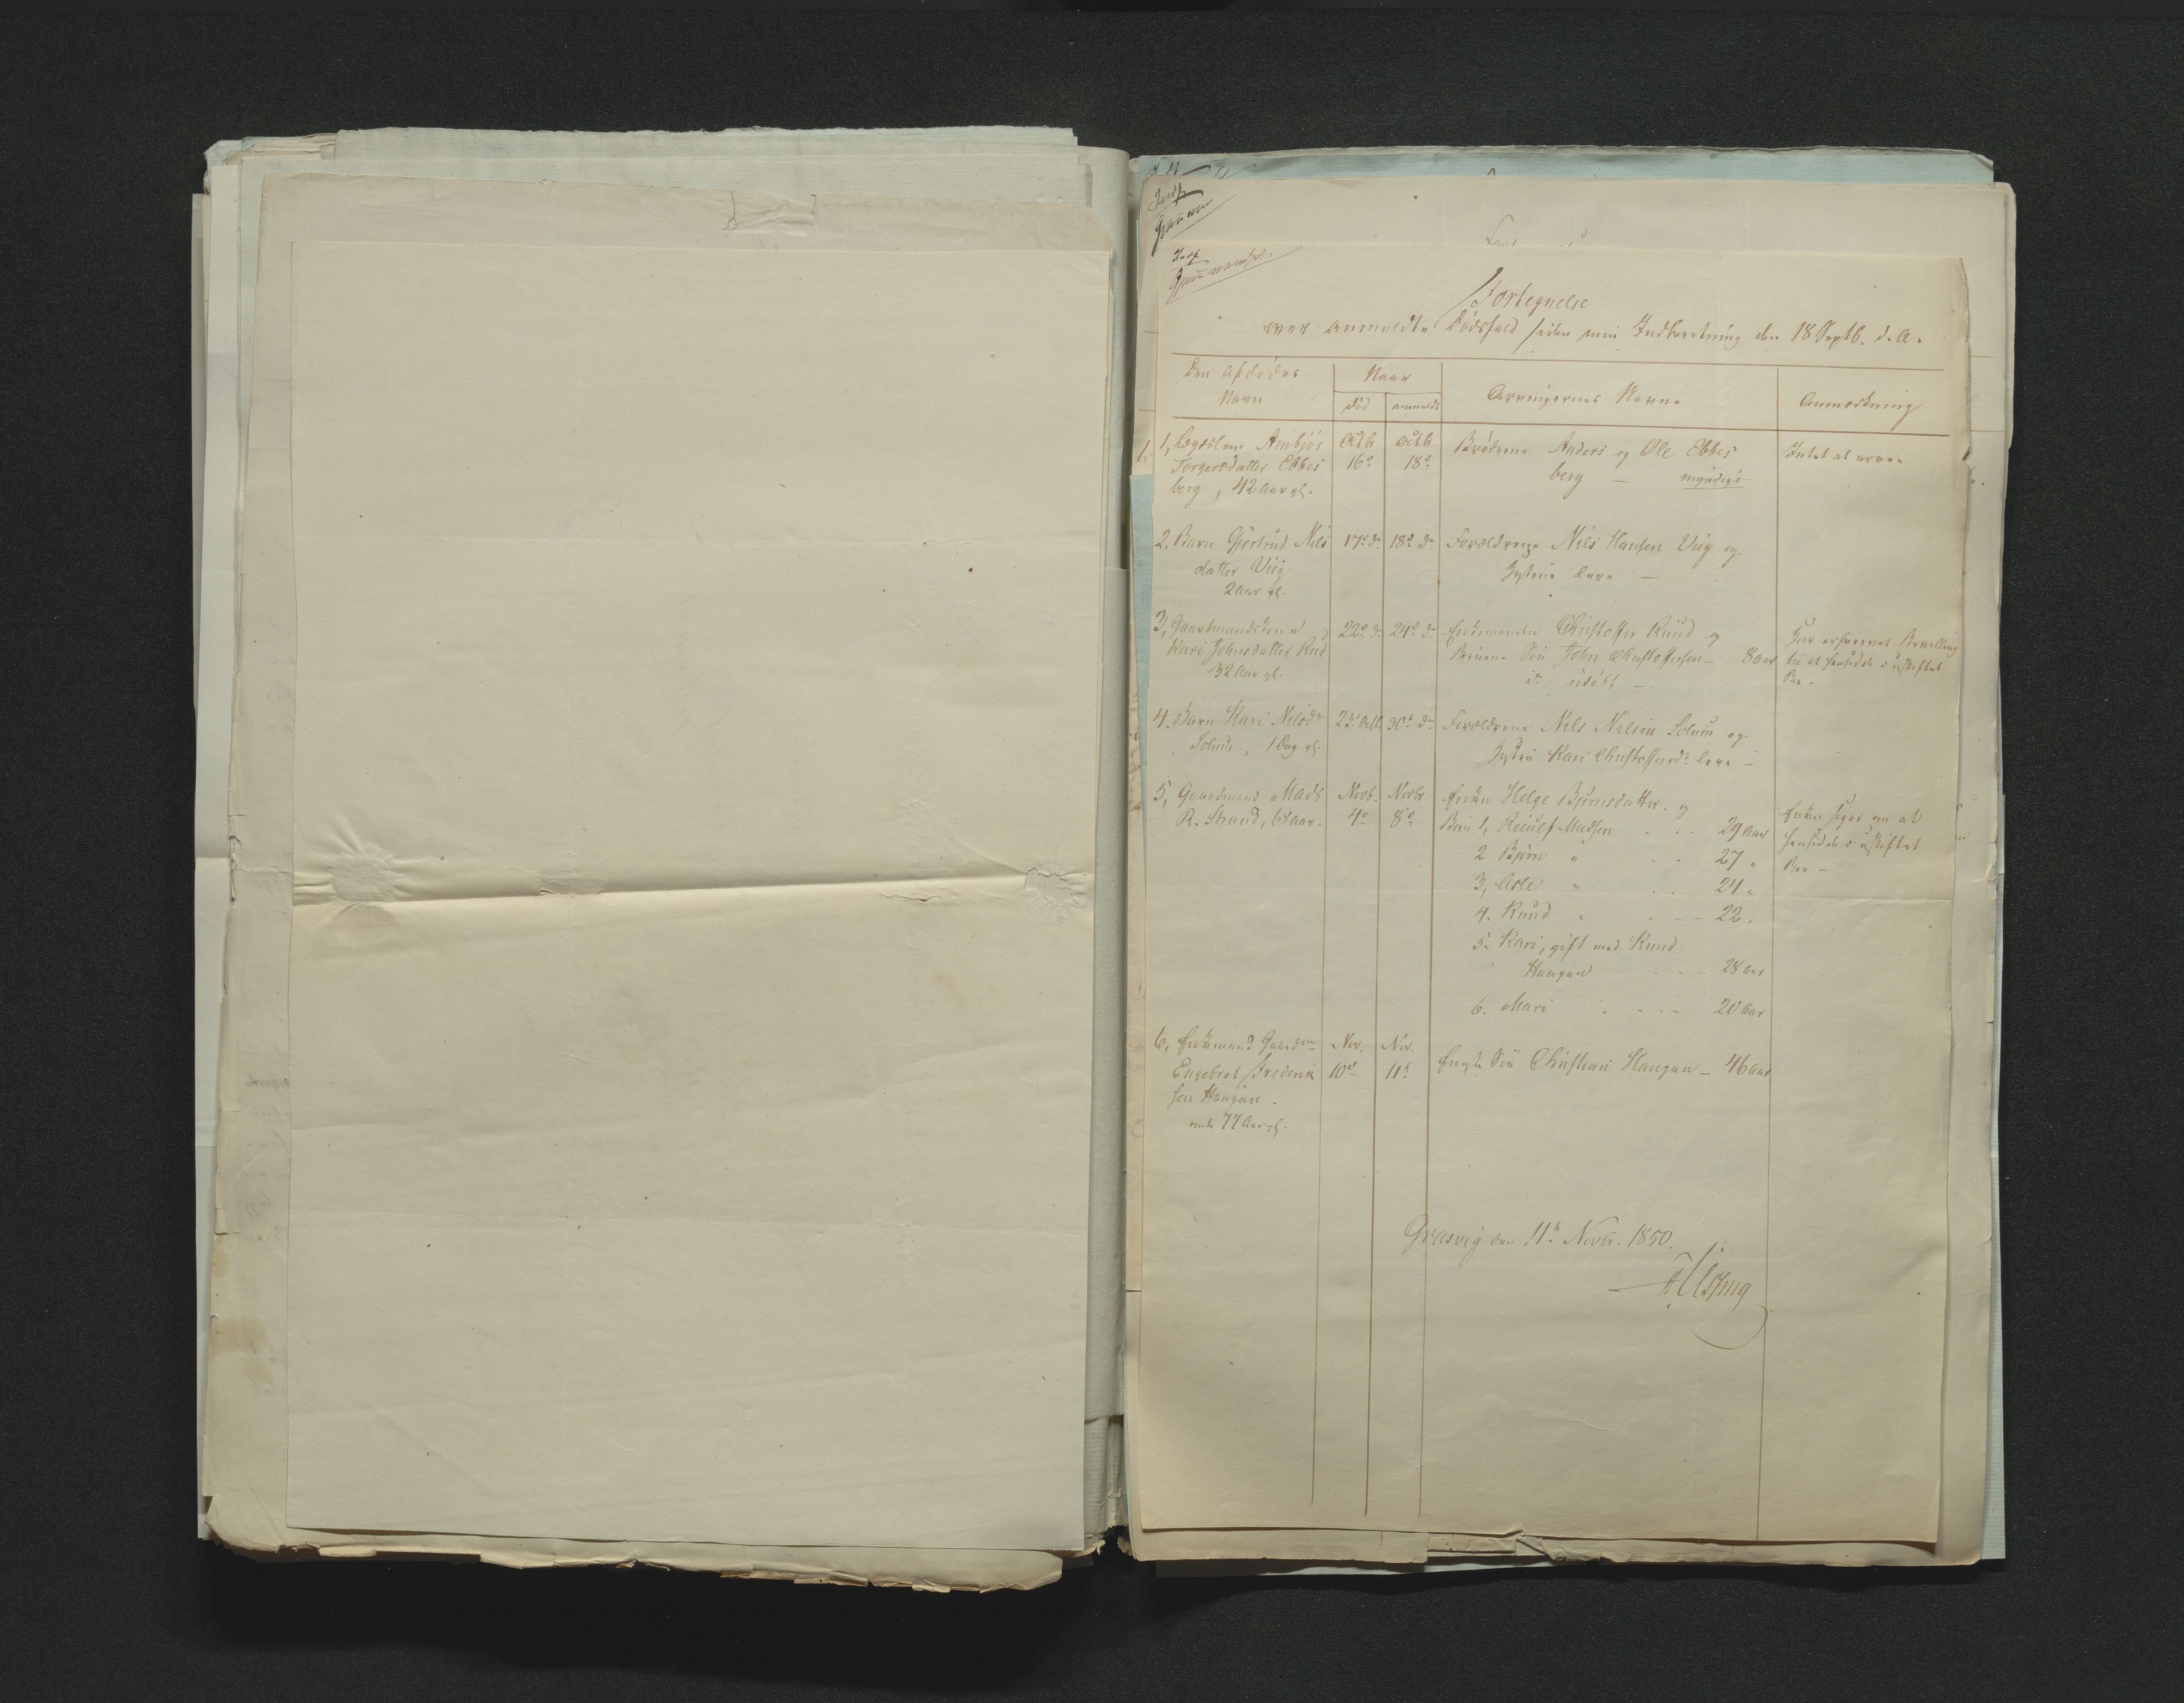 Fortegnelse
over anmeldte Dødsfald siden min Indberetning den 18 Septb. d. A.
Den afdødes Navn
Naar
død
anmeldt
Arvingernes Navne
Anmærkning
1, Lægdslem Ambjør
Torgersdatter Ebbes
berg, 42 Aar gl.
Octb 16de
Octb 18de
Brødrene Anders og Ole Ebbes
berg — myndige
Intet at arve.
2. Barn Gjertrud Nils
datter Viig
2 Aar gl.
17de do
18de do
Forældrene Nils Hansen Viig og
Hustrue leve —
3, Gaardmandskone
Kari Johnsdatter Rud
32 Aar gl.
22de do
24de do
Enkemanden Christoffer Ruud og
Børnene Søn John Christoffersen — 8 Aar
do udøbt —
Har erhvervet Bevilling
til at hensidde i uskiftet
Boe.
4. Barn Kari Nilsdr
Solum, 1 Dag gl.
23de Octb
30te do
Forældrene Nils Nilsen Solum og
Hustru Kari Christoffersdr leve —
5, Gaardmand Mads
R. Strand, 68 Aar.
Novb. 4de
Novbr 8de
Enken Helge Bjørnsdatter og
Børn 1, Reiulf Madsen . . . 29 Aar
2 Bjørn " . . 27 "
3, Asle " . . 24 "
4. Knud " . . — 22 "
5. Kari, gift med Knud
Haugan . . . 28 Aar
6. Mari . . . . 20 Aar
Enken søger om at
hensidde i uskiftet
Boe —
6, Enkemand Gaardm
Engebret Frederik
sen Haugan.
77 Aar gl.
Nov. 10de
Nov. 11te
Eneste Søn Christian Haugan — 46 Aar
Græsvig den 11te Novbr. 1850.